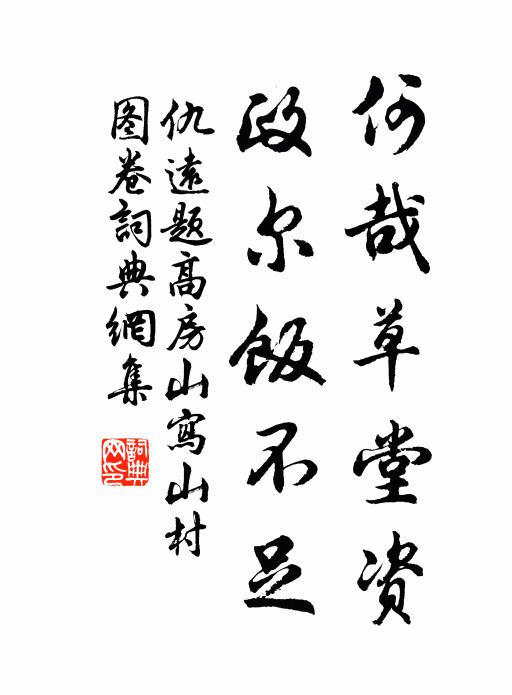 何哉草堂资
政尔饭不足
仇遠题高房山寫山村
图卷詞典網集
詞典網印